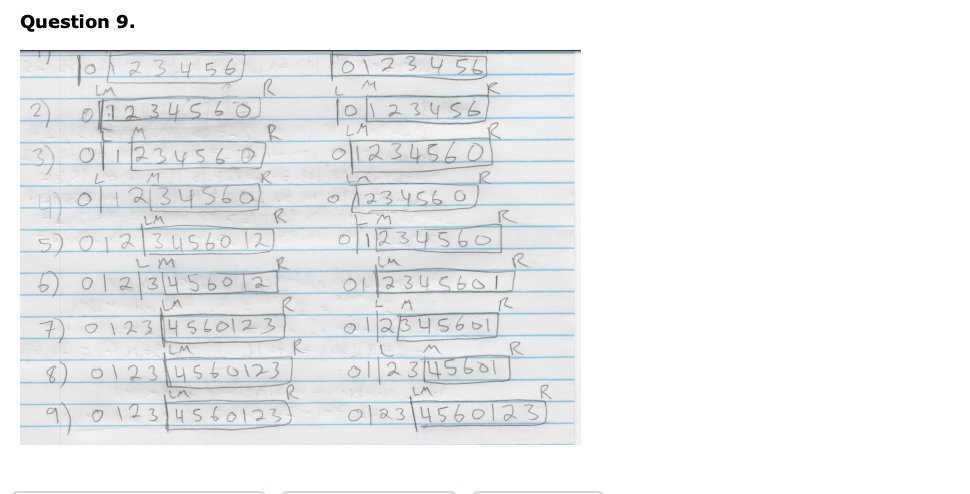 Question 9.
0 1 2 3 4 5 6 0 1 2 3 4 5 6
LM R L M R
2) 0 1 2 3 4 5 6 0 0 1 2 3 4 5 6
L M R LM R
3) 0 1 2 3 4 5 6 0 0 1 2 3 4 5 6 0
L M R LM R
4) 0 1 2 3 4 5 6 0 0 1 2 3 4 5 6 0
LM R L M R
5) 0 1 2 3 4 5 6 0 1 2 0 1 2 3 4 5 6 0
L M R LM R
6) 0 1 2 3 4 5 6 0 1 2 0 1 2 3 4 5 6 0 1
LM R L M R
7) 0 1 2 3 4 5 6 0 1 2 3 0 1 2 3 4 5 6 0 1
LM R L M R
8) 0 1 2 3 4 5 6 0 1 2 3 0 1 2 3 4 5 6 0 1
LM R LM R
9) 0 1 2 3 4 5 6 0 1 2 3 0 1 2 3 4 5 6 0 1 2 3